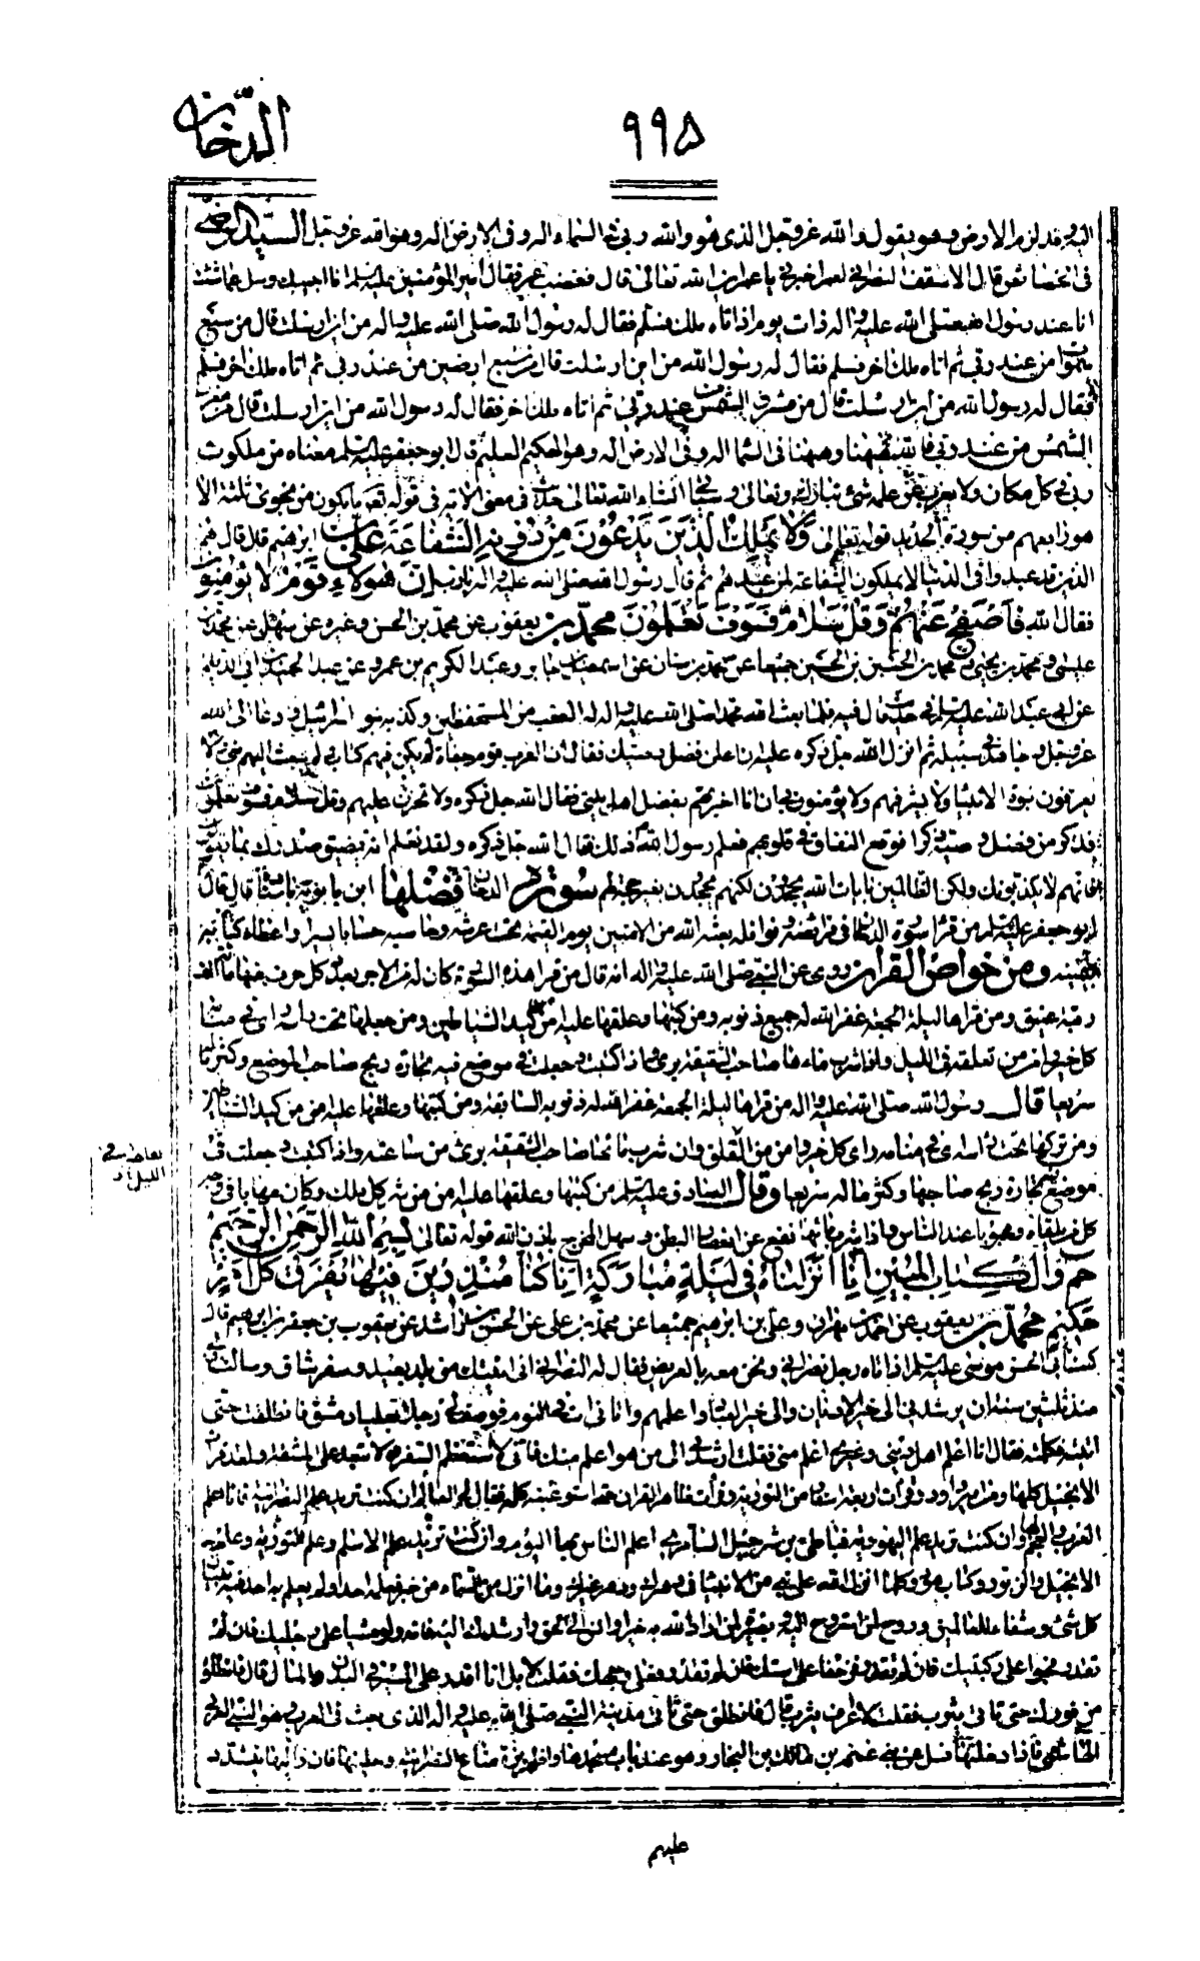 الدخان
٩٩٥
اليه وقد لزم الارض وهو يقول والله عزوجل الذى هو والله ربي في السماء اله وفى الارض اله وهو الله عزوجل السيد الرضي
فى الخصائص قال الاسقف النصراني لعمر اخبرني يا عمر اين الله تعالى قال فغضب عمر فقال امير المؤمنين عليه السلم انا اجيبك وسل عما شئت
انا عند رسول الله صلى الله عليه واله ذات يوم اذ اتاه ملك فسلم فقال له رسول الله صلى الله عليه واله من اين ارسلت قال من سبع
سموات من عند ربي ثم اتاه ملك اخر فسلم فقال له رسول الله من اين ارسلت قال من سبع ارضين من عند ربي ثم اتاه ملك اخر فسلم
فقال له رسول الله من اين ارسلت قال من مشرق الشمس من عند ربي ثم اتاه ملك اخر فقال له رسول الله من اين ارسلت قال من مغرب
الشمس من عند ربي فالله ههنا وههنا فى السماء اله وفى الارض اله وهو الحكيم العليم قال ابو جعفر عليه السلم معناه من ملكوت
ربي فى كل مكان ولا يعزب عن علمه شئ تبارك وتعالى وسيأتي انشاء الله تعالى حديث فى معنى الاية فى قوله تعالى ما يكون من نجوى ثلثة الا
هو رابعهم من سورة الحديد قوله تعالى ولا يملك الذين يدعون من دونه الشفاعة علي بن ابرهيم قال قال هم
الذين قد عبدوا فى الدنيا لا يملكون الشفاعة لمن عبدهم ثم قال رسول الله صلى الله عليه واله يا رب ان هؤلاء قوم لا يؤمنون
فقال الله فاصفح عنهم وقل سلام فسوف تعلمون محمد بن يعقوب عن محمد بن الحسن وغيره عن سهل عن محمد بن
عيسى ومحمد بن يحيى ومحمد بن الحسين جميعا عن محمد بن سنان عن اسمعيل بن جابر وعبد الكريم بن عمرو عن عبد الحميد بن ابي الديلم
عن ابي عبد الله عليه السلم في حديث قال فيه فلما بعث الله محمدا صلى الله عليه واله له العقب من المستحفظين وكذبه بنو اسرائيل ودعا الى الله
عزوجل وجاهد فى سبيله ثم انزل الله جل ذكره عليه ان اعلن فضل وصيك فقال ان العرب قوم جفاة لم يكن فيهم كتاب ولم يبعث اليهم نبي ولا
يعرفون نبوة الانبياء ولا شرفهم ولا يؤمنون بي ان انا اخبرتهم بفضل اهل بيتي فقال الله جل ذكره ولا تحزن عليهم وقل سلام فسوف تعلمون
فذكر من فضل وصيه ذكرا فوقع النفاق فى قلوبهم فعلم رسول الله ذلك فقال الله جل ذكره ولقد نعلم انه يضيق صدرك بما يقولون
فانهم لا يكذبونك ولكن الظالمين بايات الله يجحدون لكنهم يجحدون بغير حجة لهم سورة الدخان فضلها ابن بابويه باسناده قال قال
ابو جعفر عليه السلم من قرأ سورة الدخان فى فرائضه ونوافله بعثه الله من الامنين يوم القيمة تحت عرشه وحاسبه حسابا يسيرا واعطاه كتابه
بيمينه ومن خواص القران روى عن النبي صلى الله عليه واله انه قال من قرأ هذه السورة كان له من الاجر بعدد كل حرف منها مائة الف
رقبة عتيق ومن قرأها ليلة الجمعة غفر الله له جميع ذنوبه ومن كتبها وعلقها عليه امن من كيد الشياطين ومن جعلها تحت رأسه راى فى منامه
كل خير وامن من قلقه فى الليل واذا شرب ماءها صاحب الشقيقة برئ واذا كتبت وجعلت فى موضع فيه تجارة ربح صاحب الموضع وكثر ماله
سريعا قال رسول الله صلى الله عليه واله من قرأها ليلة الجمعة غفر الله له ذنوبه السابقة ومن كتبها وعلقها عليه امن من كيد الشياطين
ومن تركها تحت رأسه راى فى منامه راى كل خير وامن من القلق وان شرب ماءها صاحب الشقيقة برئ من ساعته واذا كتبت وجعلت فى
موضع تجارة ربح صاحبها وكثر ماله سريعا وقال الصادق عليه السلم من كتبها وعلقها عليه امن من شر كل ملك وكان مهابا فى وجه
كل من يلقاه ومحبوبا عند الناس واذا شرب ماءها نفع من انعصار البطن وسهل المخرج باذن الله قوله تعالى بسم الله الرحمن الرحيم
حم والكتاب المبين انا انزلناه فى ليلة مباركة انا كنا منذرين فيها يفرق كل امر
حكيم محمد بن يعقوب عن احمد بن مهران وعلي بن ابرهيم جميعا عن محمد بن علي عن الحسن بن راشد عن يعقوب بن جعفر بن ابرهيم قال
كنت عند ابى الحسن موسى عليه السلم اذ اتاه رجل نصراني ونحن معه بالعريض فقال له النصراني اني اتيتك من بلد بعيد وسفر شاق وسالت ربي
منذ ثلثين سنة ان يرشدني الى خير الاديان والى خير العباد واعلمهم واتاني ات فى النوم فوصف لي رجلا بعليا دمشق فانطلقت حتى
اتيته فكلمته فقال انا اعلم اهل ديني وغيري اعلم مني فقلت ارشدني الى من هو اعلم منك فاني لا استعظم السفر ولا تبعد علي الشقة ولقد قرأت
الانجيل كلها ومزامير داود وقرأت اربعة اسفار من التورية وقرأت ظاهر القران حتى استوعبته كله فقال لي العالم ان كنت تريد علم النصرانية فانا اعلم
العرب والعجم بها وان كنت تريد علم اليهودية فباطي بن شرحبيل السامري اعلم الناس بها اليوم وان كنت تريد علم الاسلام وعلم التورية وعلم
الانجيل والزبور وكتاب هود وكلما انزل الله على نبي من الانبياء فى دهرك ودهر غيرك وما انزل من السماء من خبر فعلمه احد او لم يعلم به احد فيه تبيان
كل شئ وشفاء للعالمين وروح لمن استروح اليه وبصيرة لمن اراد الله به خيرا وانس الى الحق وارشدك اليه فاته ولو مشيا على رجليك فان لم
تقدر فحبوا على ركبتيك فان لم تقدر فزحفا على استك فان لم تقدر فعلى وجهك فقلت لا بل انا اقدر على المسير فى البدن والمال قال فانطلق
من فورك حتى تاتي يثرب فقلت لا اعرف يثرب قال فانطلق حتى تاتي مدينة النبي صلى الله عليه واله الذى بعث فى العرب وهو النبي العربي
الهاشمي فاذا دخلتها فسل عن بني غنم بن مالك بن النجار وهو عند باب مسجدها واظهر بزة النصرانية وحليتها فان واليها يتشدد
عليهم